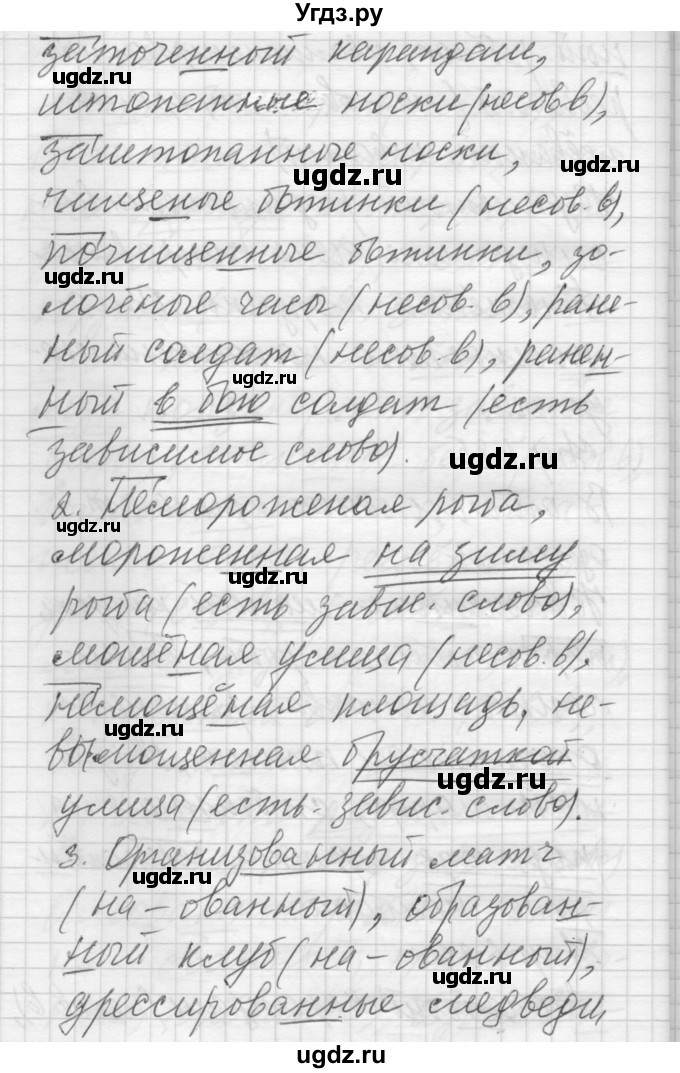 Угдз.ру
заточенный карандаш,
ugdz.ru
штопаные носки (несов в),
заштопанные носки,
ugdz.ru
ugdz.ru
чищеные ботинки (несов. в),
ugdz.ru
почищенные ботинки, зо-
ugdz.ru
лочёные часы (несов. в), ране-
ный солдат (несов. в), ранен-
ugdz.ru
ный в бою солдат (есть
зависимое слово).
ugdz.ru
2. Немороженая рыба,
мороженная на зиму
ugdz.ru
рыба (есть завис. слово),
мощёная улица (несов. в),
немощёная площадь, не-
ugdz.ru
вымощенная брусчаткой
ugdz.ru
улица (есть завис. слово).
3. Организованный матч
ugdz.ru
(на -ованный), образован-
ный клуб (на -ованный),
ugdz.ru
дрессированные медведи,
ugdz.ru